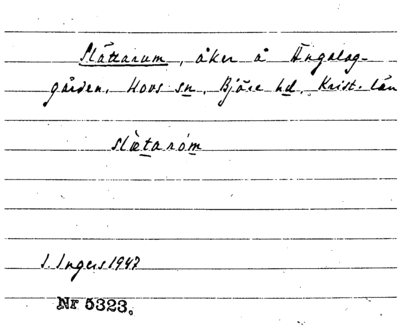 Slättarum, åker å Ängalag-
gården, Hovs sn, Bjäre hd, Krist. län
slætaróm
I. Ingers 1947
Nr 5323.